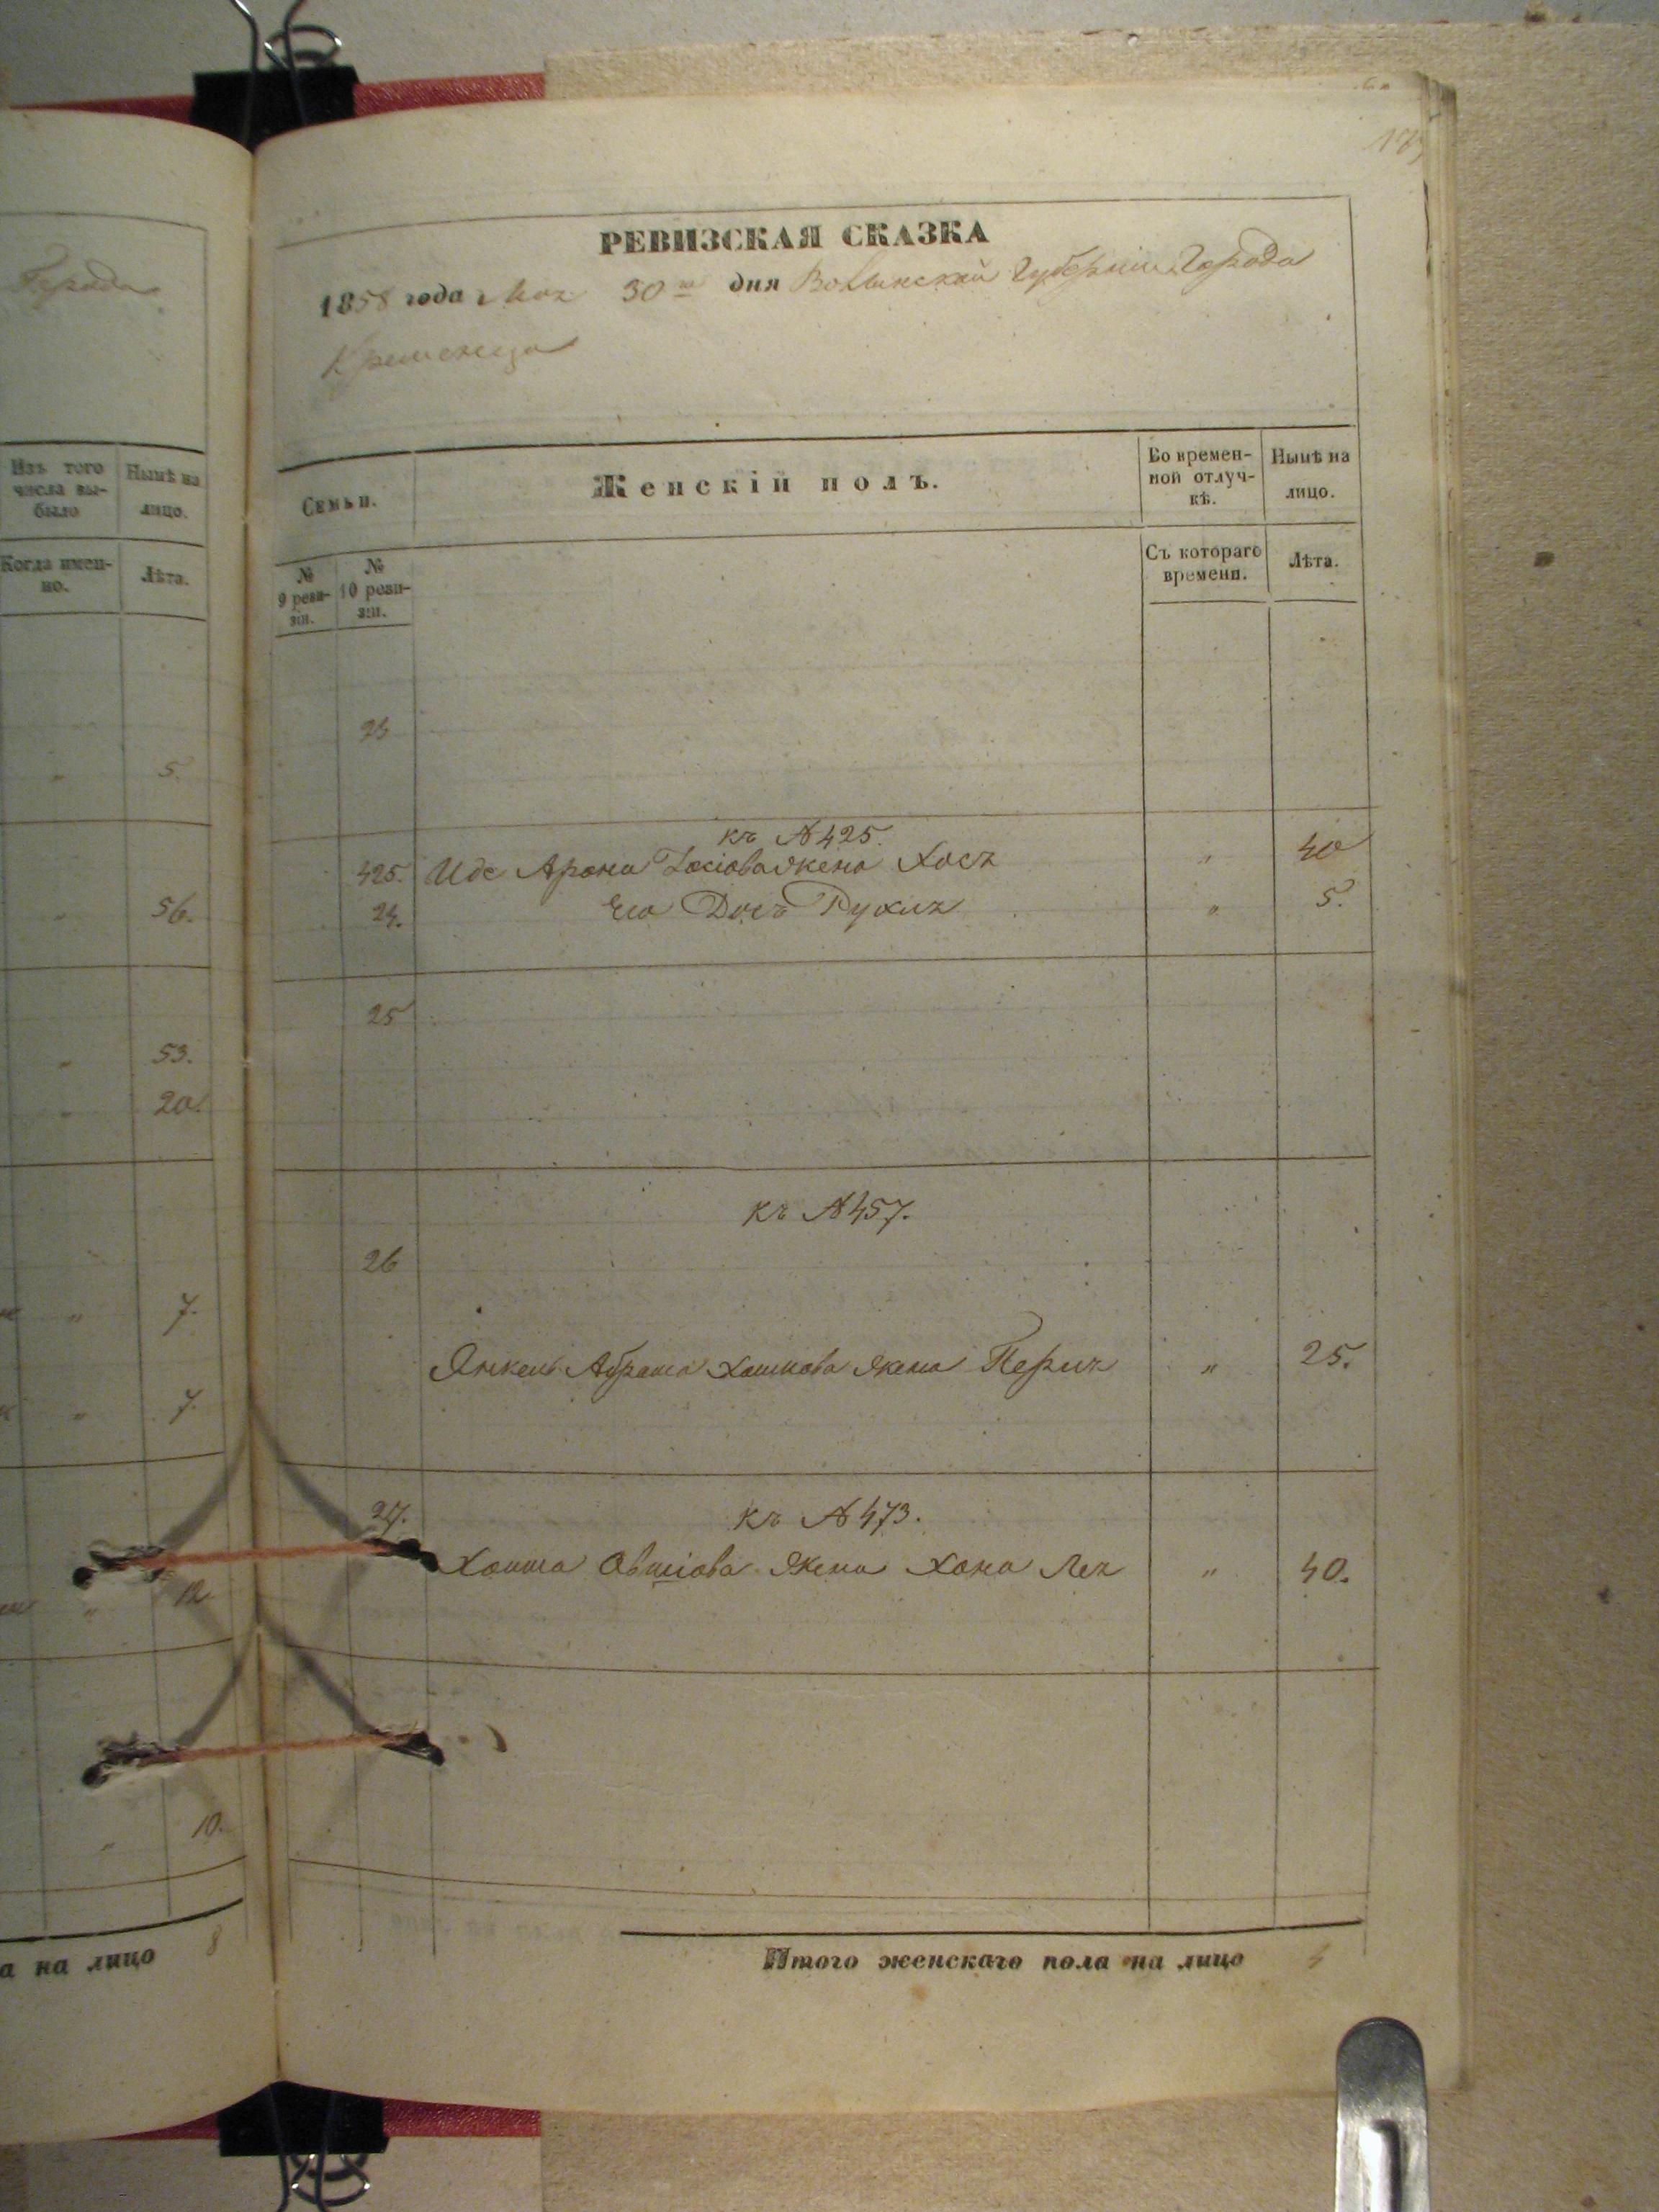 Города
Изъ того числа вы-было
Нынѣ на лицо.
Когда имен-но.
Лѣта.
5.
56.
53.
20.
7.
7.
12
10.
а на лицо 8
РЕВИЗСКАЯ СКАЗКА
1858 года Мая 30го дня Волынской Губерніи Города
Кременца
Семьи.
Женскій полъ.
Во времен-ной отлуч-кѣ.
Нынѣ на лицо.
№ 9 реви-зіи.
№ 10 реви-зіи.
Съ котораго времени.
Лѣта.
23
къ № 425.
425. Иде Арона жена Хася " 40
24. Его Дочь " 5.
25
къ № 457.
26
Янкель Абрама жена Перля " 25.
27. къ № 473.
жена Хана Лея " 40.
Итого женскаго пола на лицо 4